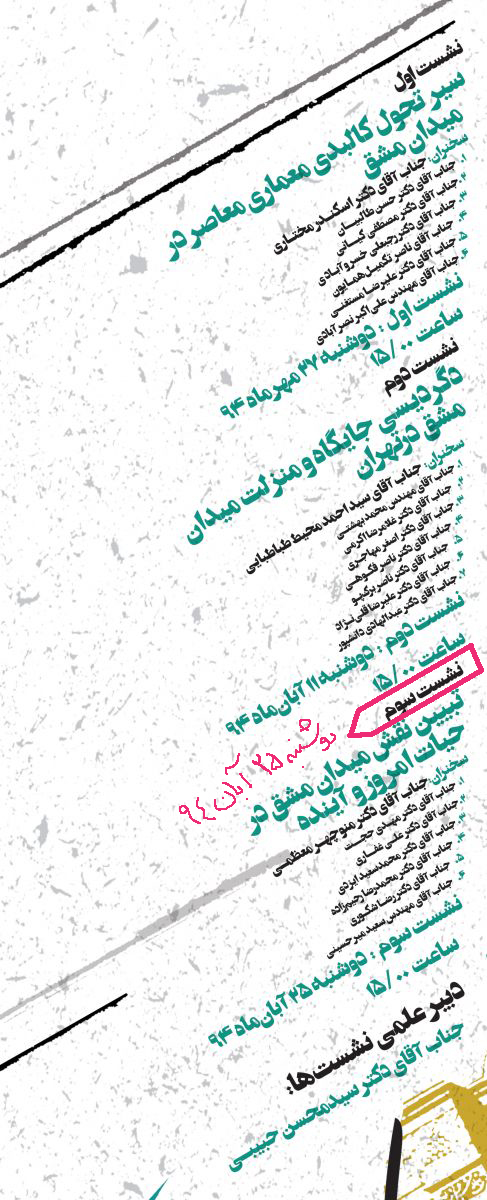 نشست اول
سیر تحول کالبدی معماری معاصر در
میدان مشق
سخنران: جناب آقای دکتر اسکندر مختاری
۱. جناب آقای دکتر حسن طالبیان
۲. جناب آقای دکتر مصطفی کیانی
۳. جناب آقای دکتر رجبعلی خسروآبادی
۴. جناب آقای ناصر تکمیل همایون
۵. جناب آقای دکتر علیرضا مستغنی
۶. جناب آقای مهندس علی اکبر نصرآبادی
نشست اول : دوشنبه ۲۷ مهرماه ۹۴
ساعت ۱۵/۰۰
نشست دوم
دگردیسی جایگاه و منزلت میدان
مشق درتهران
سخنران: جناب آقای سید احمد محیط طباطبایی
۱. جناب آقای مهندس محمد بهشتی
۲. جناب آقای دکتر غلامرضا اکرمی
۳. جناب آقای دکتر اصغر مهاجری
۴. جناب آقای دکتر ناصر فکوهی
۵. جناب آقای دکتر ناصر برکپو
۶. جناب آقای دکتر علیرضا قلی‌نژاد
۷. جناب آقای دکتر عبدالهادی دانشپور
نشست دوم : دوشنبه ۱۱ آبان‌ماه ۹۴
ساعت ۱۵/۰۰
نشست سوم
دوشنبه ۲۵ آبان ۹۴
تبیین نقش میدان مشق در
حیات امروز و آینده
سخنران: جناب آقای دکتر منوچهر معظمی
۱. جناب آقای دکتر مهدی حجت
۲. جناب آقای دکتر علی غفاری
۳. جناب آقای دکتر محمدسعید ایزدی
۴. جناب آقای دکتر محمدرضا رحیم‌زاده
۵. جناب آقای دکتر رضا شکوری
۶. جناب آقای مهندس سعید میرحسینی
نشست سوم : دوشنبه ۲۵ آبان‌ماه ۹۴
ساعت ۱۵/۰۰
دبیر علمی نشست‌ها:
جناب آقای دکتر سیدمحسن حبیبی